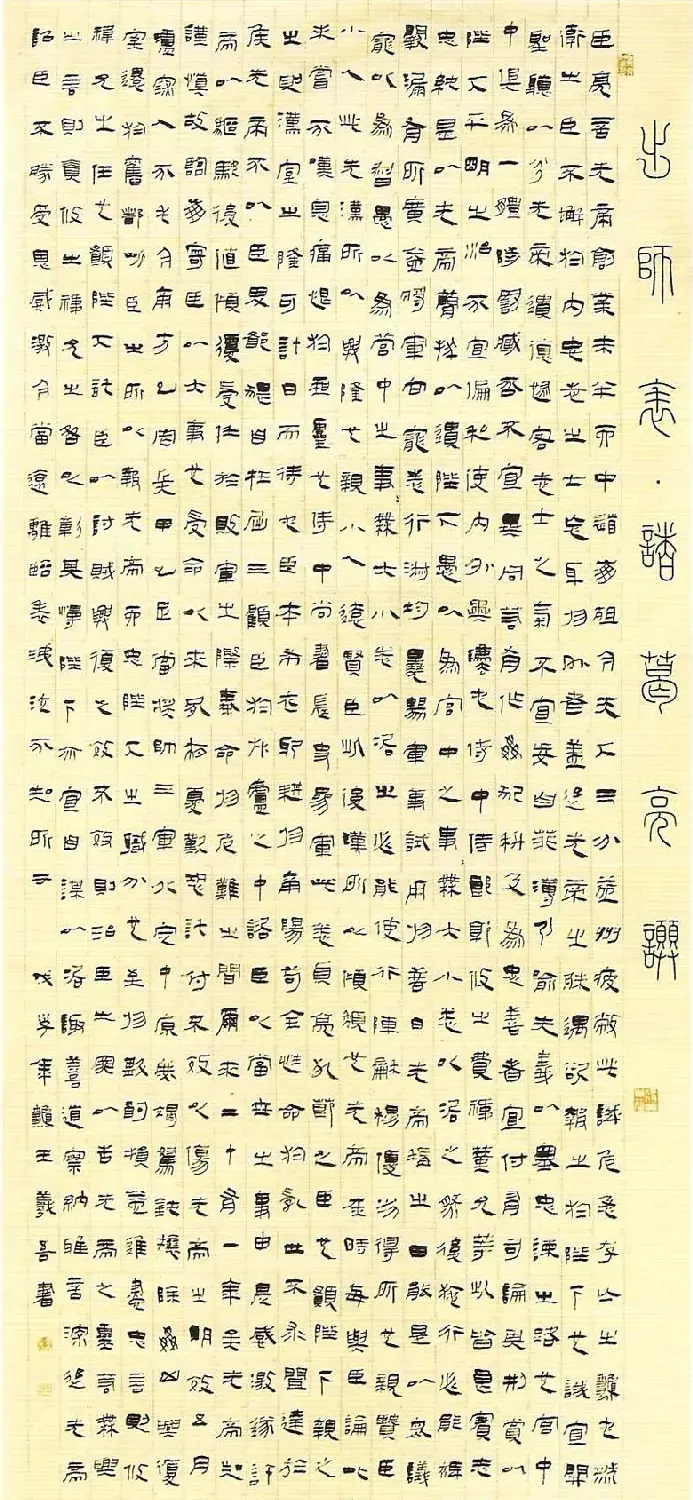 出師表·諸葛亮譔
臣亮言先帝創業未半而中道崩殂今天下三分益州疲敝此誠危急存亡之秋也然
衛之臣不懈於內忠志之士忘身於外者蓋追先帝之殊遇欲報之於陛下也誠宜開
聖聽以光先帝遺德恢宏志士之氣不宜妄自菲薄引喻失義以塞忠諫之路也宮中
中俱為一體陟罰臧否不宜異同若有作姦犯科及為忠善者宜付有司論其刑賞以
陛下平明之治不宜偏私使內外異法也侍中侍郎郭攸之費禕董允等此皆良實志
忠純是以先帝簡拔以遺陛下愚以為宮中之事無大小悉以咨之然後施行必能裨
闕漏有所廣益將軍向寵性行淑均曉暢軍事試用於昔日先帝稱之曰能是以眾議
寵以為督愚以為營中之事無大小悉以咨之必能使行陣和穆優劣得所也親賢臣
小人此先漢所以興隆也親小人遠賢臣此後漢所以傾頹也先帝在時每與臣論此
未嘗不嘆息痛恨於桓靈也侍中尚書長史參軍此悉貞亮死節之臣也願陛下親之
之則漢室之隆可計日而待也臣本布衣躬耕於南陽苟全性命於亂世不求聞達於
侯先帝不以臣卑鄙猥自枉屈三顧臣於草廬之中諮臣以當世之事由是感激遂許
帝以驅馳後值傾覆受任於敗軍之際奉命於危難之間爾來二十有一年矣先帝知
謹慎故臨崩寄臣以大事也受命以來夙夜憂歎恐託付不效以傷先帝之明故五月
瀘深入不毛今南方已定兵甲已足當獎帥三軍北定中原庶竭駑鈍攘除姦凶興復
室還於舊都此臣之所以報先帝而忠陛下之職分也至於斟酌損益進盡忠言則攸
禕允之任也願陛下託臣以討賊興復之效不效則治臣之罪以告先帝之靈若無興
之言則責攸之禕允之咎以彰其慢陛下亦宜自謀以咨諏善道察納雅言深追先帝
詔臣不勝受恩感激今當遠離臨表涕泣不知所云 戊子年